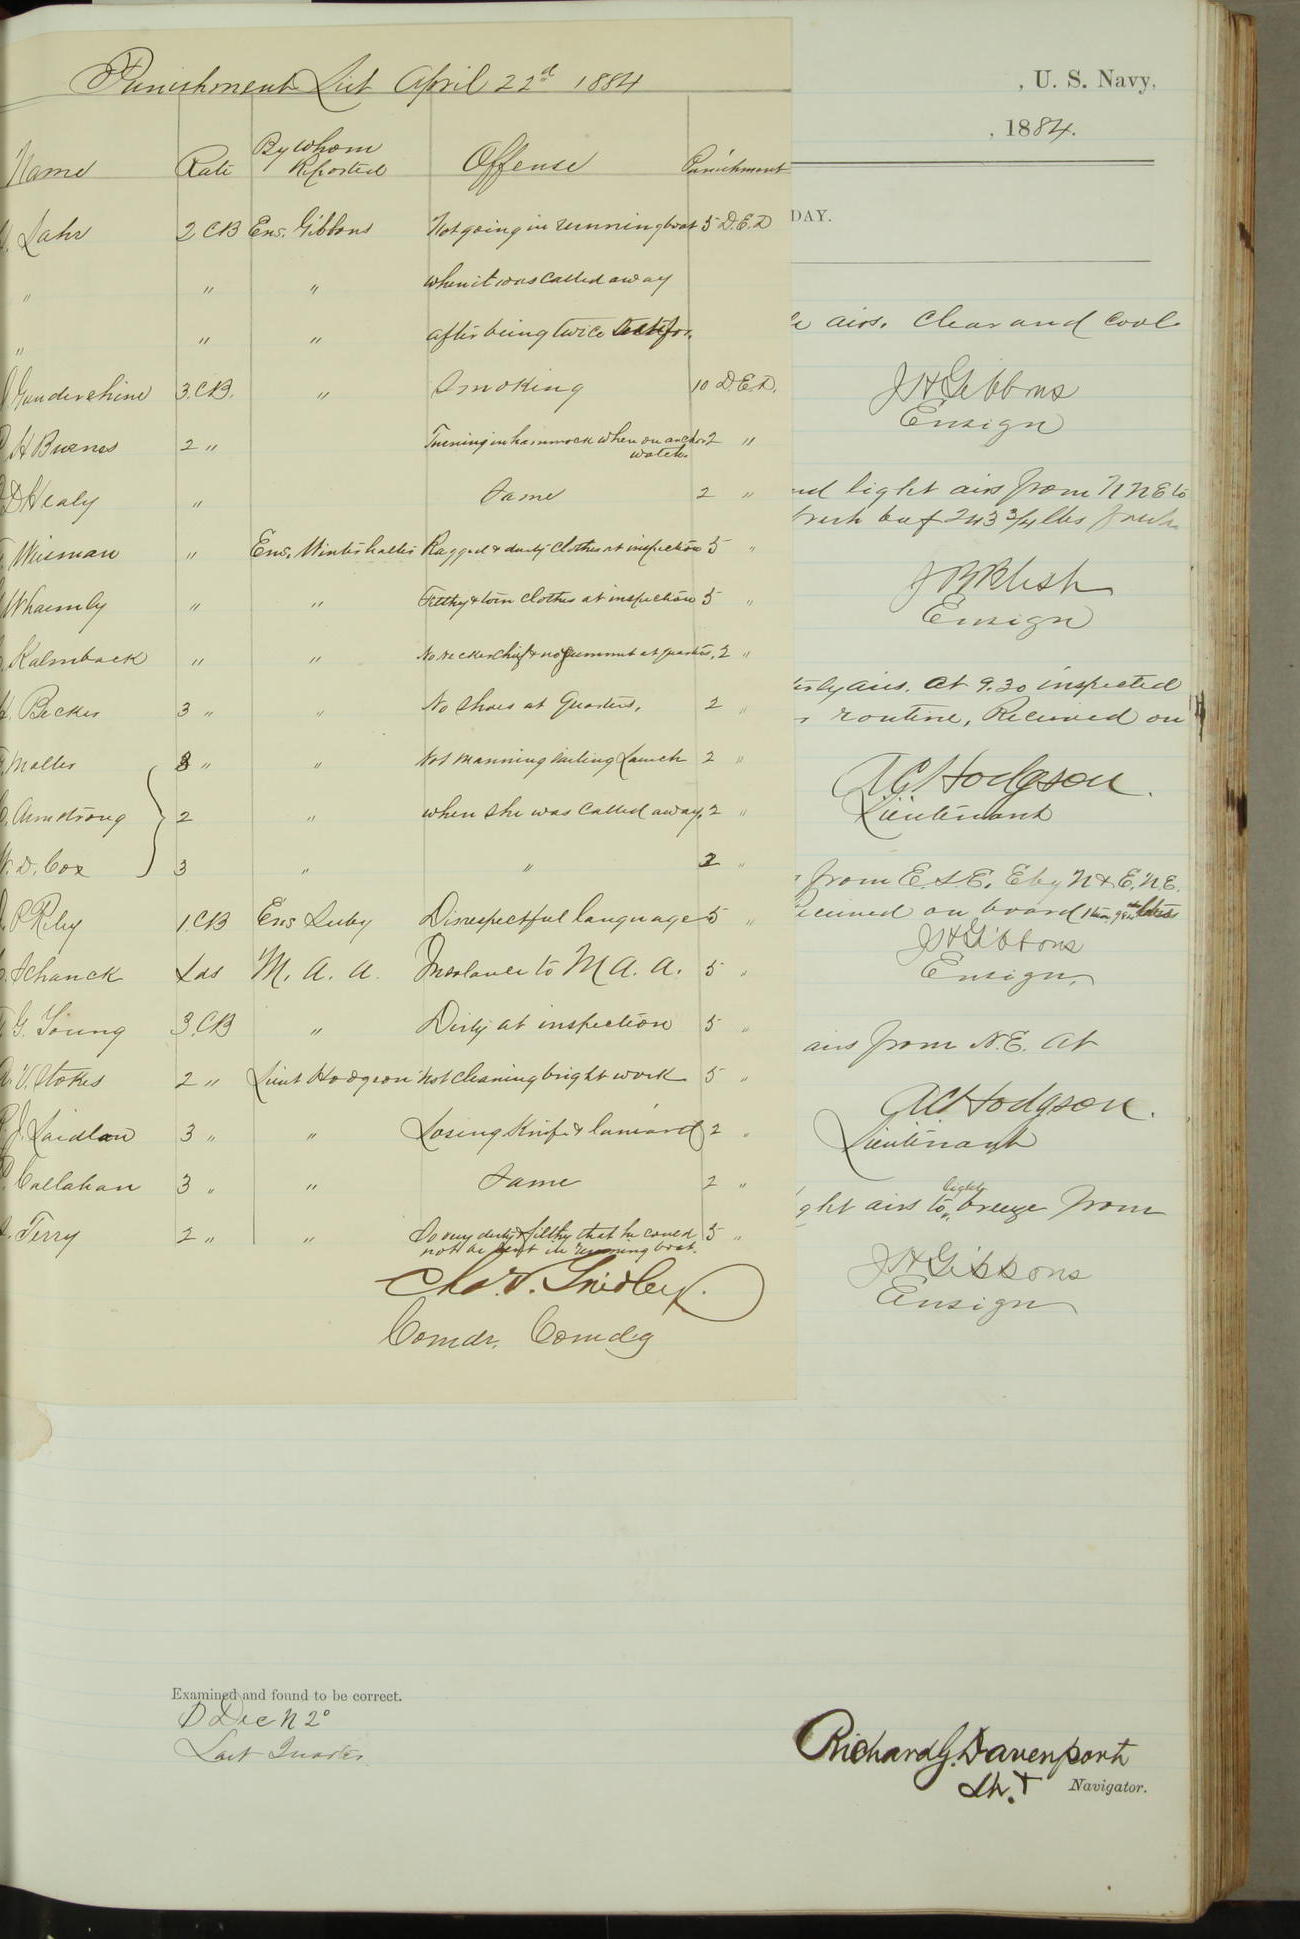 Punishment List April 22d 1884
Name Rate By whom Reported Offense Punishment
Lahr 2 CB Ens. Gibbons Not going in running boat 5 D.E.D
" " " when it was called away
" " " after being twice
Gundershine 3.CB. " Smoking 10 D.E.D.
H Burns 2 " Turning in hammock when on anchor 2 "
watch
D Healy " Same 2 "
Wieman " Ens. Winterhalter Ragged & dirty clothes at inspection 5 "
Whaemby " " Filthy & torn clothes at inspection 5 "
Kalmback " " No neckerchief & no at quarters, 2 "
Becker 3 " " No shoes at Quarters. 2 "
Moller 3 " " Not manning sailing Launch 2 "
Armstrong 2 " when she was called away, 2 "
W. D. Cox 3 " " 2 "
P Riley 1.CB Ens Luby Disrespectful language 5 "
Schanck Lds M. A. A. Insolance to M A. A. 5 "
G. Young 3.CB " Dirty at inspection 5 "
V. Stokes 2 " Lieut Hodgson Not cleaning bright work 5 "
J. Laidlaw 3 " " Losing Knife & laniard 2 "
Callahan 3 " " Same 2 "
Terry 2 " " So very dirty & filthy that he could 5 "
not be sent in running boat.
Chas. V. Gridley.
Comdr. Comdg
, U. S. Navy,
, 1884.
DAY.
airs. Clear and cool
J H Gibbons
Ensign
light airs from N N E to
fresh beef 243 3/4 lbs fresh
Ensign
airs. At 9.30 inspected
routine, Received on
A C Hodgson.
Lieutenant
from E. S. E. E by N & E. N. E.
Received on board
J H Gibbons
Ensign.
airs from N. E. At
A C Hodgson.
Lieutenant
light
airs to breeze from
J H Gibbons
Ensign
Examined and found to be correct.
D Dec N 2°
Last Quarter
Richard G. Davenport
Lt. Navigator.